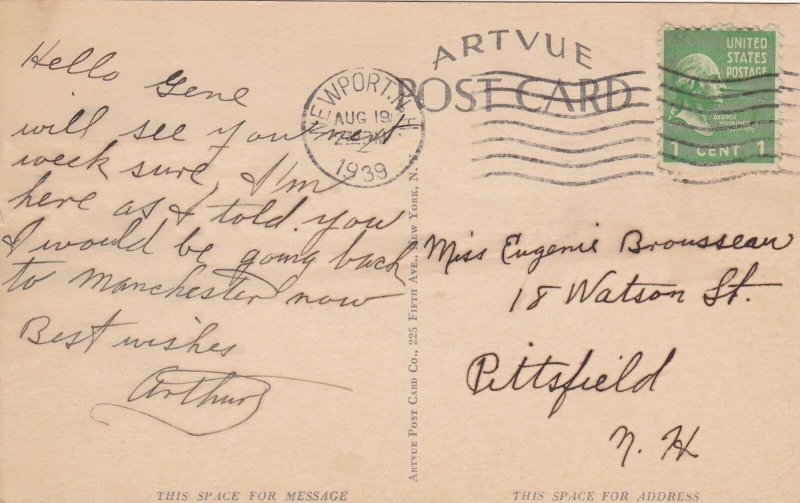 Hello Gene
will see you next
week sure, I'm
here as I told you
I would be going back
to Manchester now
Best wishes
Arthur
THIS SPACE FOR MESSAGE
ARTVUE POST CARD CO., 225 FIFTH AVE., NEW YORK, N. Y.
ARTVUE
POST CARD
NEWPORT, R.I.
AUG 19
1939
UNITED
STATES
POSTAGE
GEORGE
WASHINGTON
1 CENT 1
Miss Eugenie Brousseau
18 Watson St.
Pittsfield
N. H
THIS SPACE FOR ADDRESS